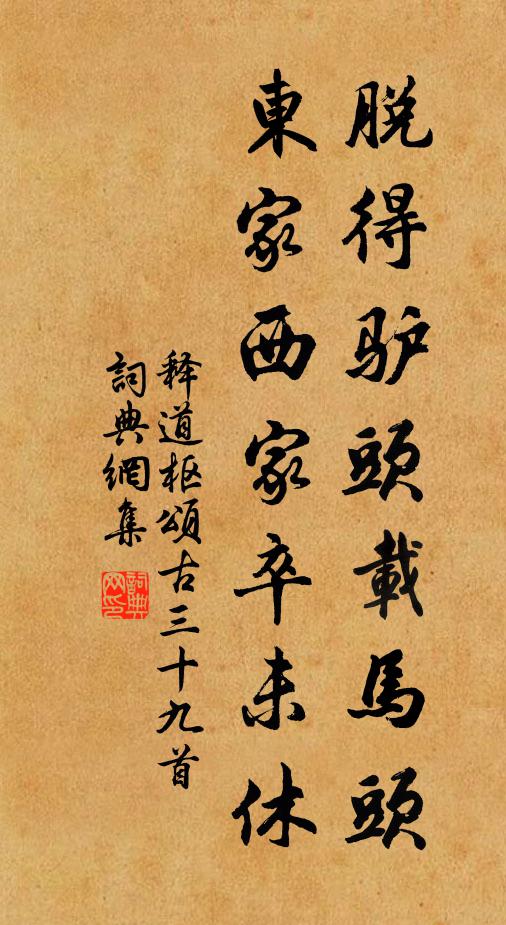 脱得驴頭載馬頭
東家西家卒未休
释道枢頌古三十九首
詞典網集
詞典网印